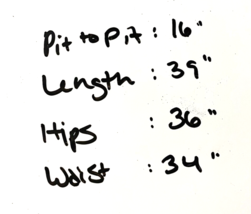 Pit to Pit : 16"
Length : 39"
Hips : 36"
Waist : 34"